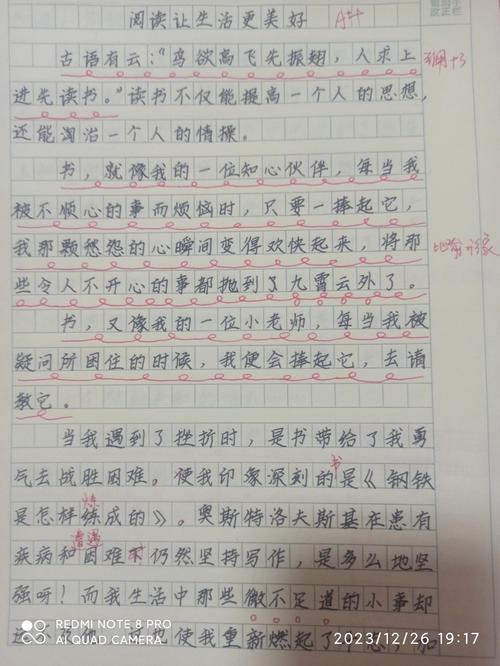 阅读让生活更美好 A++
古语有云:“鸟欲高飞先振翅,人求上 引用+3
进先读书。”读书不仅能提高一个人的思想,
还能淘冶一个人的情操。
书,就像我的一位知心伙伴,每当我
被不顺心的事而烦恼时,只要一捧起它,
我那颗愁怨的心瞬间变得欢快起来,将那 比喻形象
些令人不开心的事都抛到了九霄云外了。
书,又像我的一位小老师,每当我被
疑问所困住的时候,我便会捧起它,去请
教它。
当我遇到了挫折时,是书带给了我勇
气去战胜困难。使我印象深刻的书是《钢铁
是怎样炼成的》。奥斯特洛夫斯基在患有
疾病和遭遇困难时仍然坚持写作,是多么地坚
强呀!而我生活中那些微不足道的小事却
使我重新燃起了
REDMI NOTE 8 PRO
AI QUAD CAMERA
2023/12/26 19:17